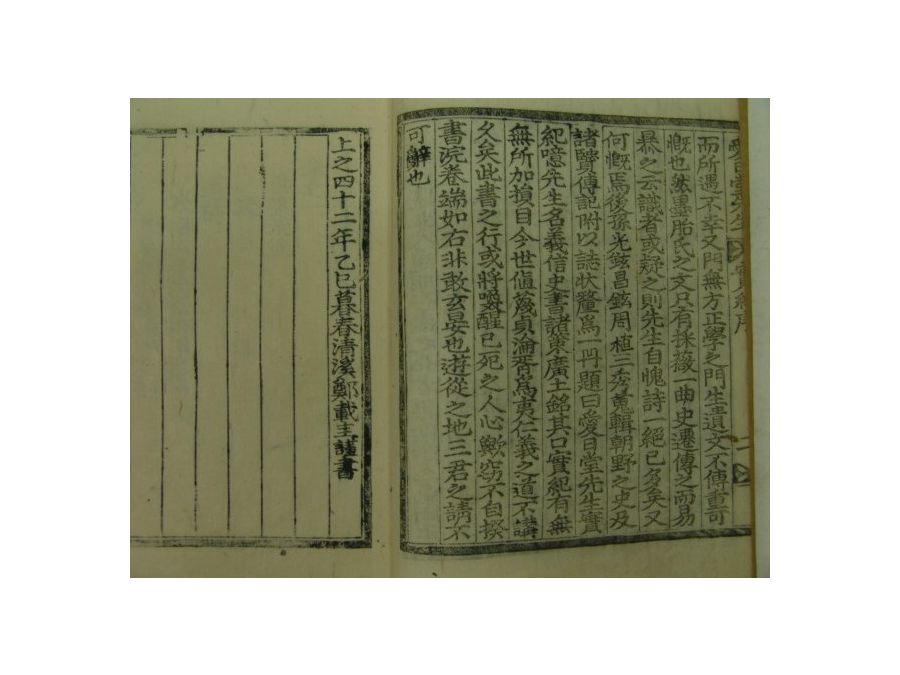 愛日堂先生實紀序
而所遇不幸又門無方正學之門生遺文不傳重可
慨也然墨胎氏之文只有採薇一曲史遷傳之而易
暴之云識者或疑之則先生自愧詩一絕已多矣又
何慨焉後孫光鉉昌鉉周植三秀蒐輯朝野之史及
諸賢傳記附以誌狀釐爲一冊題曰愛日堂先生實
紀噫先生名義信史書諸策廣土銘其口實紀有無
無所加損目今世値蔑貞淪胥爲夷仁義之道不講
久矣此書之行或將喚醒已死之人心歟窃不自揆
書浣卷端如右非敢玄晏也遊從之地三君之請不
可辭也
上之四十二年乙巳暮春淸溪鄭載圭謹書